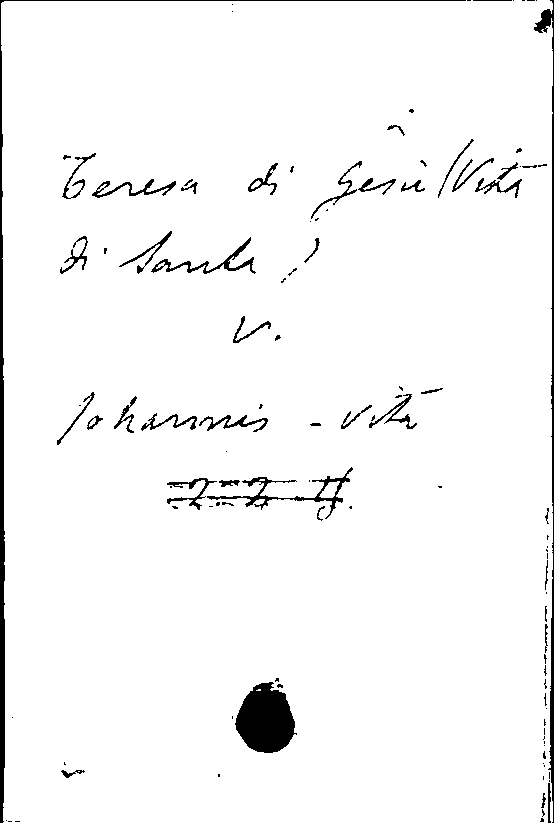 Teresa di Gesù (Vita
di Santa)
V.
Johannis - Vita